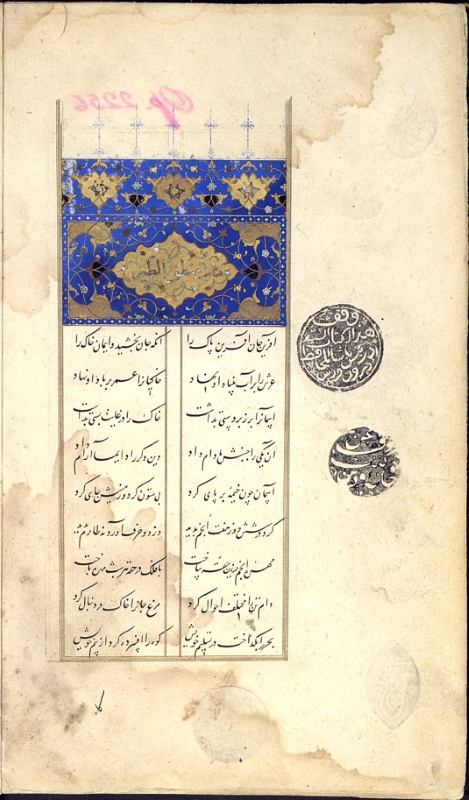 Op. 2256
کتاب منطق الطیر
افرین جان افرین پاک را
آنکه جان بخشید و ایمان خاک را
عرش را بر آب بنیاد او نهاد
خاکیانرا عمر بر باد او نهاد
آسمانرا بر زبردستی بداشت
خاک را در غایت پستی بداشت
آن یکی را جنبش مادام داد
وین دگر را دایما آرام داد
آسمان چون خیمه بر پای کرد
بی ستون کرد و زمینش جای کرد
کرد در شش روز هفت انجم پدید
وز دو حرف آورد نه طارم پدید
مهره انجم ز زرین حقه ساخت
با فلک در حقه هر شب مهره باخت
دام تن را مختلف احوال کرد
مرغ جانرا خاک در دنبال کرد
بحر را بگداخت در تسلیم خویش
کوه را افسرده کرد از بیم خویش
وقف